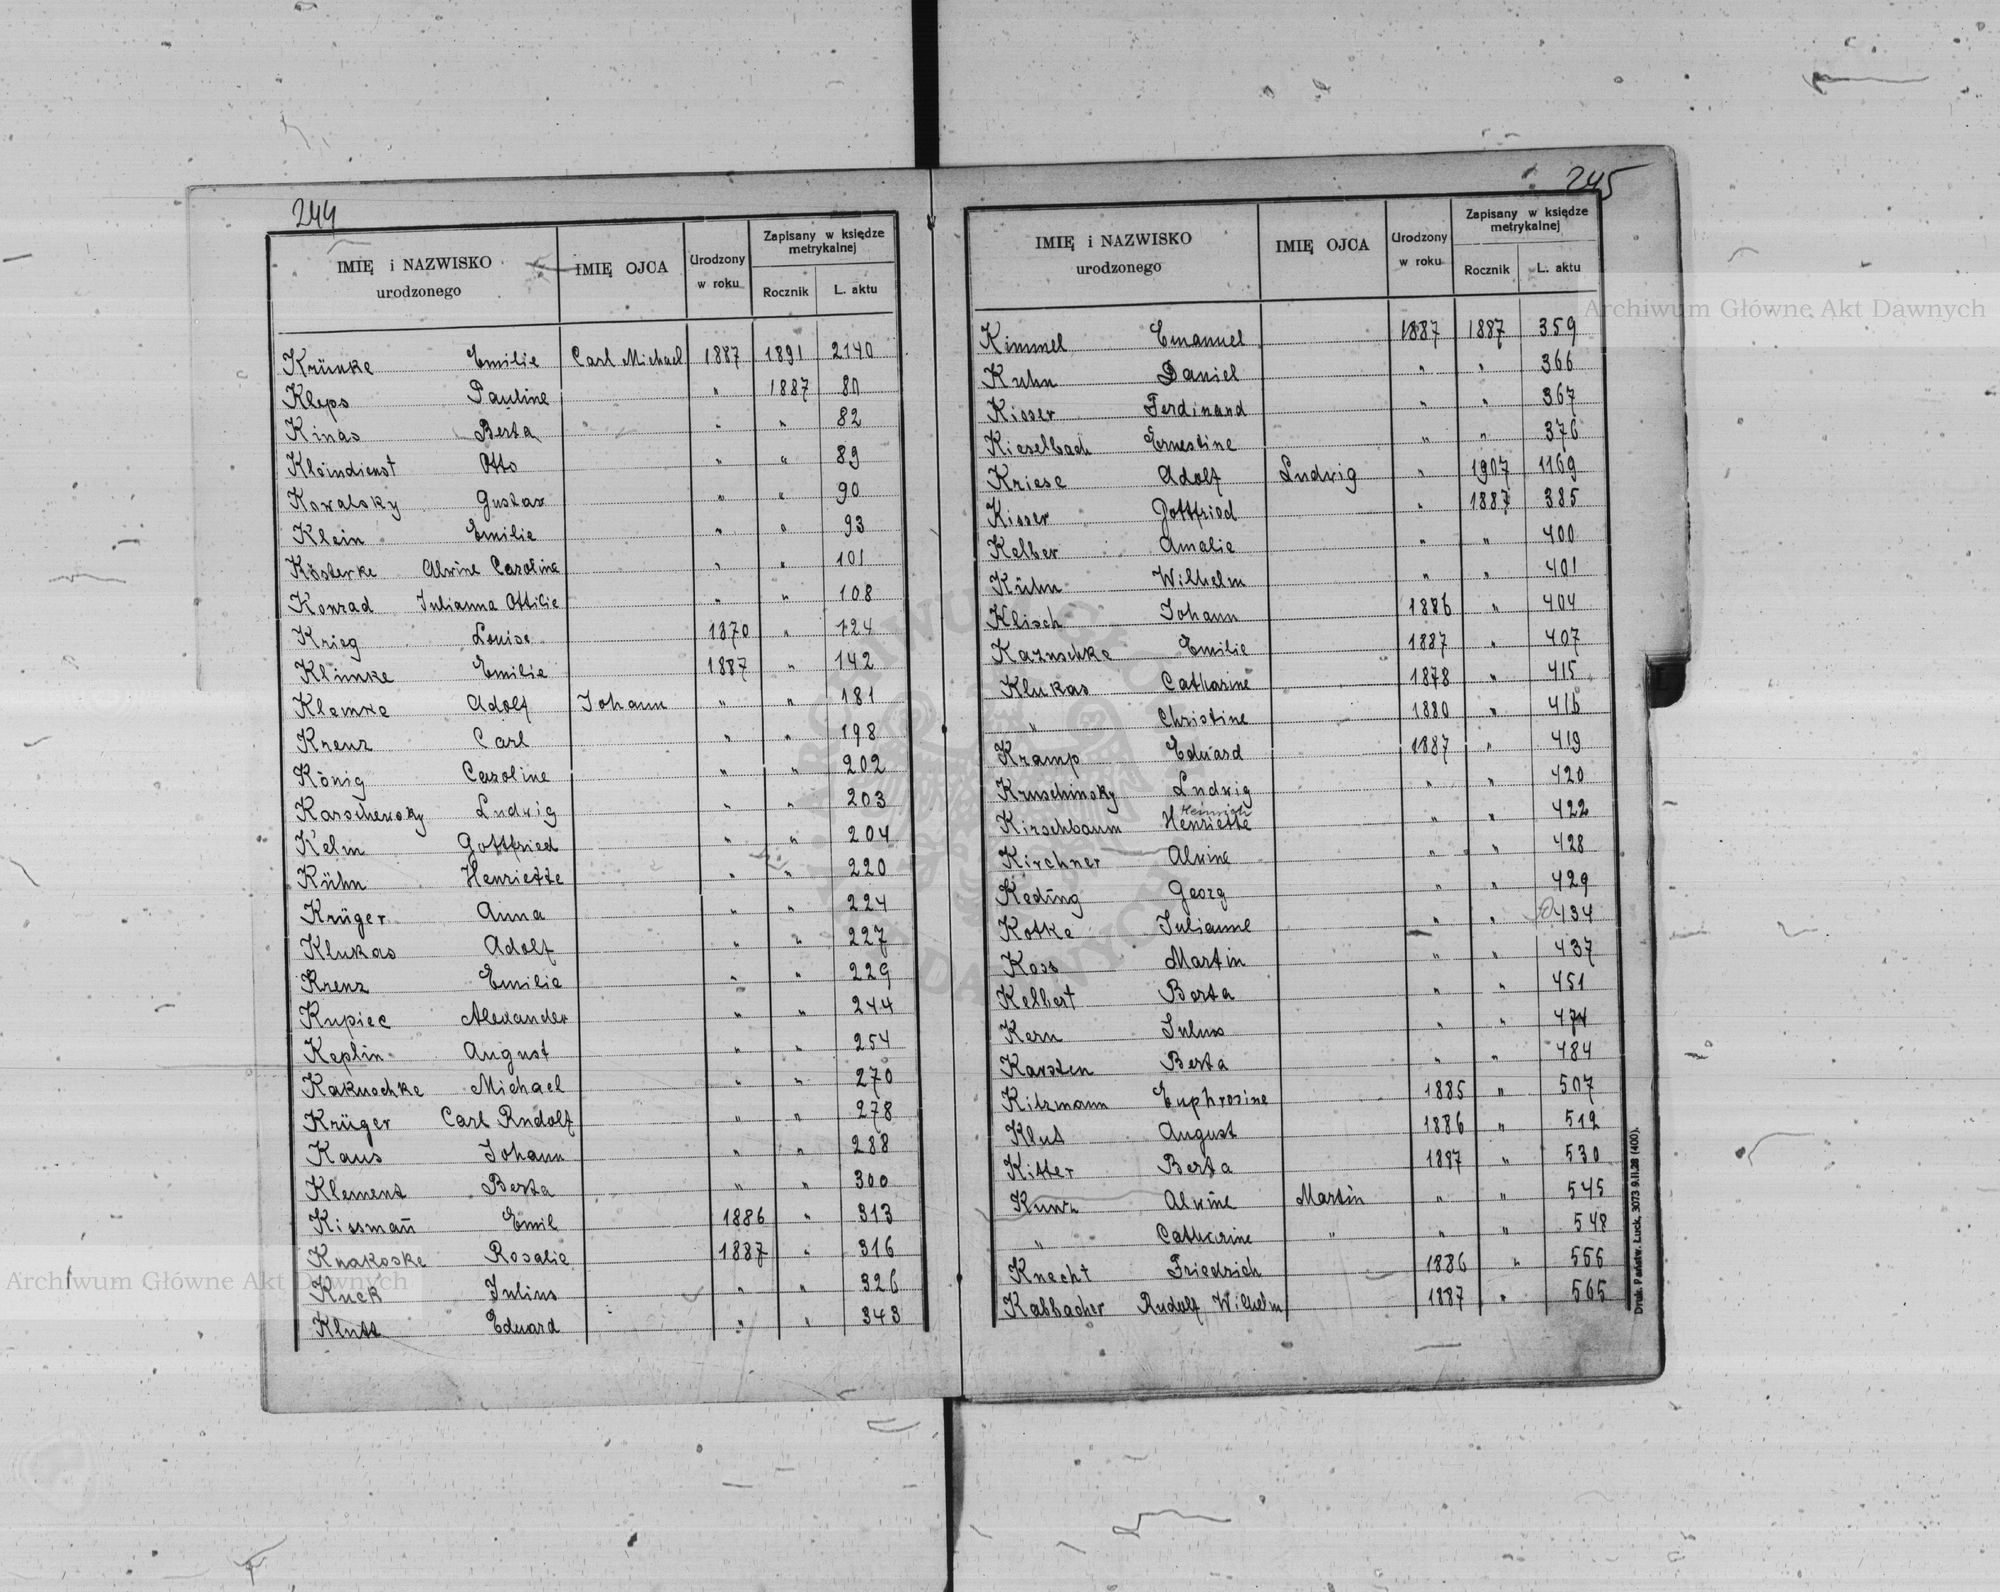 244
IMIĘ i NAZWISKO urodzonego IMIĘ OJCA Urodzony w roku Zapisany w księdze metrykalnej Rocznik L. aktu
Krünke Emilie Carl Michael 1887 1891 2140
Kleps Pauline " 1887 80
Kinas Berta " " 82
Kleindienst Otto " " 89
Kowalsky Gustav " " 90
Klein Emilie " " 93
Kösterke Alwine Caroline " " 101
Konrad Julianna Ottilie " " 108
Krieg Louise 1870 " 124
Klimke Emilie 1887 " 142
Klemke Adolf Johann " " 181
Krenz Carl " " 198
König Caroline " " 202
Karschewsky Ludwig " " 203
Kelm Gottfried " " 204
Kühn Henriette " " 220
Krüger Anna " " 224
Klukas Adolf " " 227
Krenz Emilie " " 229
Kupiec Alexander " " 244
Keplin August " " 254
Kakuschke Michael " " 270
Krüger Carl Rudolf " " 278
Kaus Johann " " 288
Klement Berta " " 300
Kissmañ Emil 1886 " 313
Knakoske Rosalie 1887 " 316
Kuck Julius " " 326
Klutt Eduard " " 343
245
IMIĘ i NAZWISKO urodzonego IMIĘ OJCA Urodzony w roku Zapisany w księdze metrykalnej Rocznik L. aktu
Kimmel Emanuel 1887 1887 359
Kuhn Daniel " " 366
Kisser Ferdinand " " 367
Kieselbach Ernestine " " 376
Kriese Adolf Ludwig " 1907 1169
Kisser Gottfried " 1887 385
Kelber Amalie " " 400
Kühn Wilhelm " " 401
Klisch Johann 1886 " 404
Kazuschke Emilie 1887 " 407
Klukas Catharine 1878 " 415
" Christine 1880 " 416
Kramp Eduard 1887 " 419
Kruschinsky Ludwig " " 420
Heinrich
Kirschbaum Henriette " " 422
Kirchner Alwine " " 428
Keding Georg " " 429
Kotke Julianne " " 434
Koss Martin " " 437
Kelbert Berta " " 451
Kern Julius " " 474
Karsten Berta " " 484
Kitzmann Euphrosine 1885 " 507
Klut August 1886 " 512
Kitter Berta 1887 " 530
Kunz Alwine Martin " " 545
" Catharine " " " 548
Knecht Friedrich 1886 " 556
Kabbacher Rudolf Wilhelm 1887 " 565
Druk. Państw. Łuck. 3073 9.II.28 (400).
Archiwum Główne Akt Dawnych
Archiwum Główne Akt Dawnych